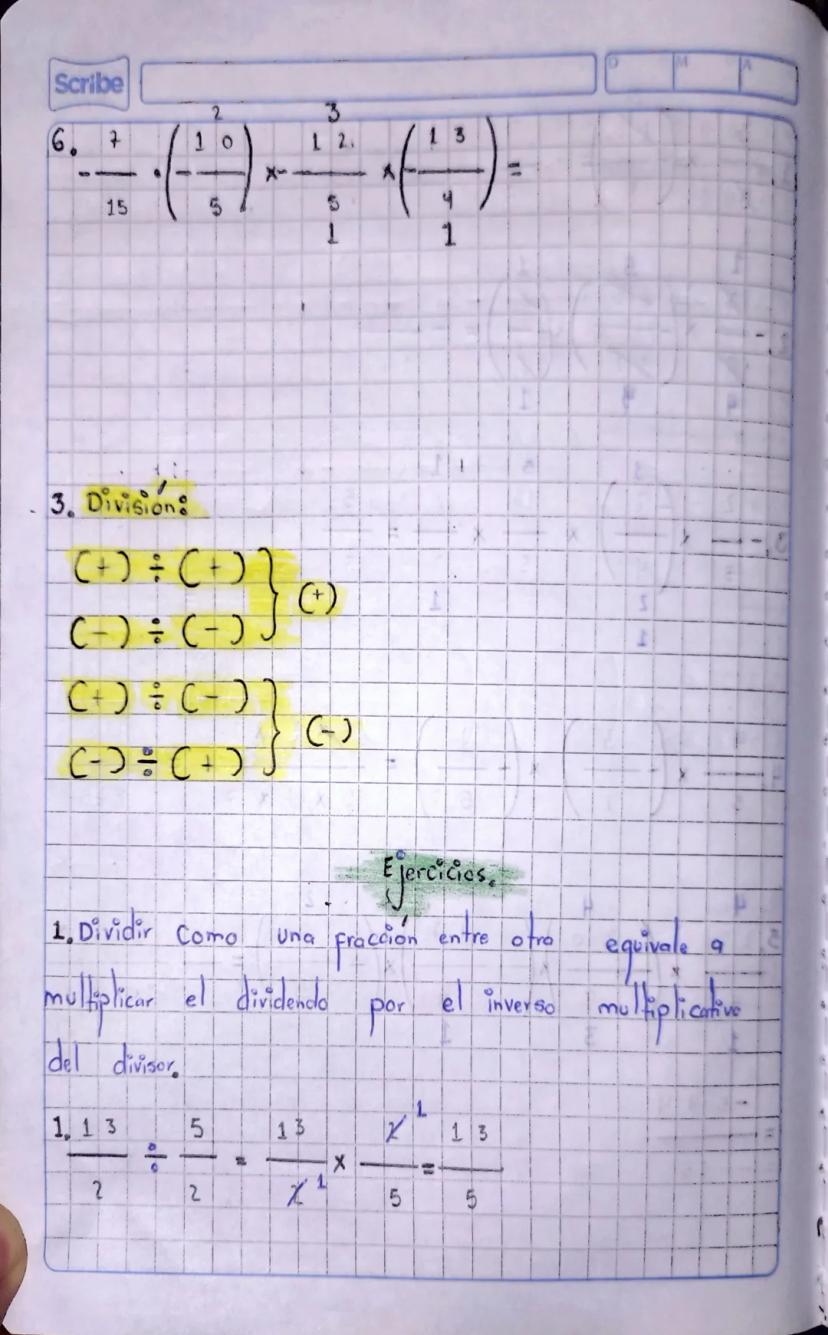 Scribe
D M A
2 3
6. - 7/15 · (- 10/5) x - 12/5 x (- 13/4) =
1 1
3. División:
(+) ÷ (+)
(+)
(-) ÷ (-)
(+) ÷ (-)
(-)
(-) ÷ (+)
Ejercicios.
1. Dividir como una fracción entre otra equivale a
multiplicar el dividendo por el inverso multiplicativo
del divisor.
1. 13/2 ÷ 5/2 = 13/2 1 x 2 1/5 = 13/5